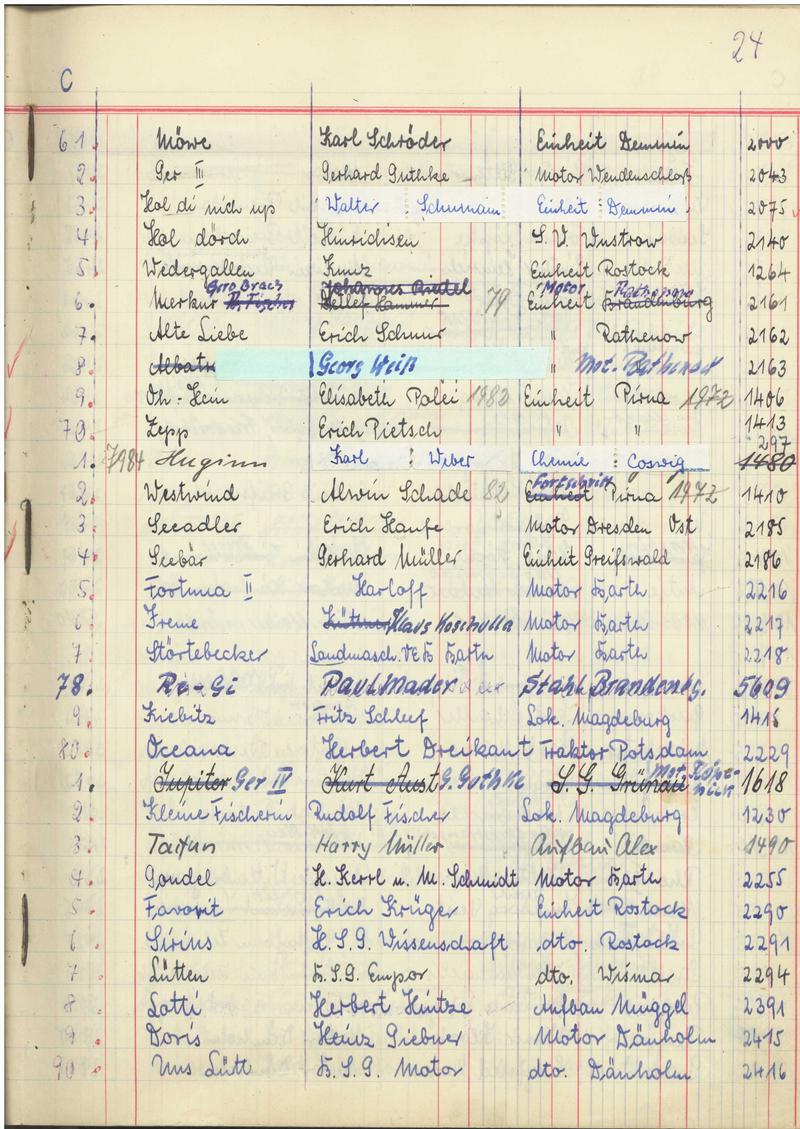 24
C
61. Möwe Karl Schröder Einheit Demmin 2000
2. Ger III Gerhard Guthke Motor Wendenschloß 2043
3. Hol di nich up Walter Schumann Einheit Demmin 2075
4. Hol dörch Hinrichsen S. V. Wustrow 2140
5. Wedergallen Kunz Einheit Rostock 1264
Johannes Riedel Motor Rathenow
6. Merkur Detlef Hammer 79 Einheit Brandenburg 2161
7. Alte Liebe Erich Schnur " Rathenow 2162
8. Georg Weiß " Mot. Rathenow 2163
9. Oh-Hein Elisabeth Polei 1982 Einheit Pirna 1972 1406
70. Zepp Erich Pietsch " " 1413
297
1. 1984 Huginn Karl Weber Chemie Coswig 1480
Fortschritt
2. Westwind Alwin Schade 82 Einheit Pirna 1972 1410
3. Seeadler Erich Haufe Motor Dresden Ost 2185
4. Seebär Gerhard Müller Einheit Greifswald 2186
5. Fortuna II Harloff Motor Barth 2216
6. Irene Klaus Koschulla Motor Barth 2217
7. Störtebecker Landmasch. VEB Barth Motor Barth 2218
78. Ri-Gi Paul Mader Stahl Brandenbg. 5609
9. Kiebitz Fritz Schleef Lok. Magdeburg 1415
80. Oceana Herbert Dreikant Traktor Potsdam 2229
1. Jupiter Ger IV Kurt Aust G. Guthke S. G. Grünau Mot. Köpe-nick 1618
2. Kleine Fischerin Rudolf Fischer Lok. Magdeburg 1230
3. Taifun Harry Müller Aufbau Alex 1490
4. Gondel H. Kerrl u. M. Schmidt Motor Barth 2255
5. Favorit Erich Krüger Einheit Rostock 2290
6. Sirius H. S. G. Wissenschaft dto. Rostock 2291
7. Lütten B. S. G. Empor dto. Wismar 2294
8. Lotti Herbert Hintze Aufbau Müggel 2391
9. Doris Heinz Giebner Motor Dänholm 2415
90. Uns Lütt B. S. G. Motor dto. Dänholm 2416